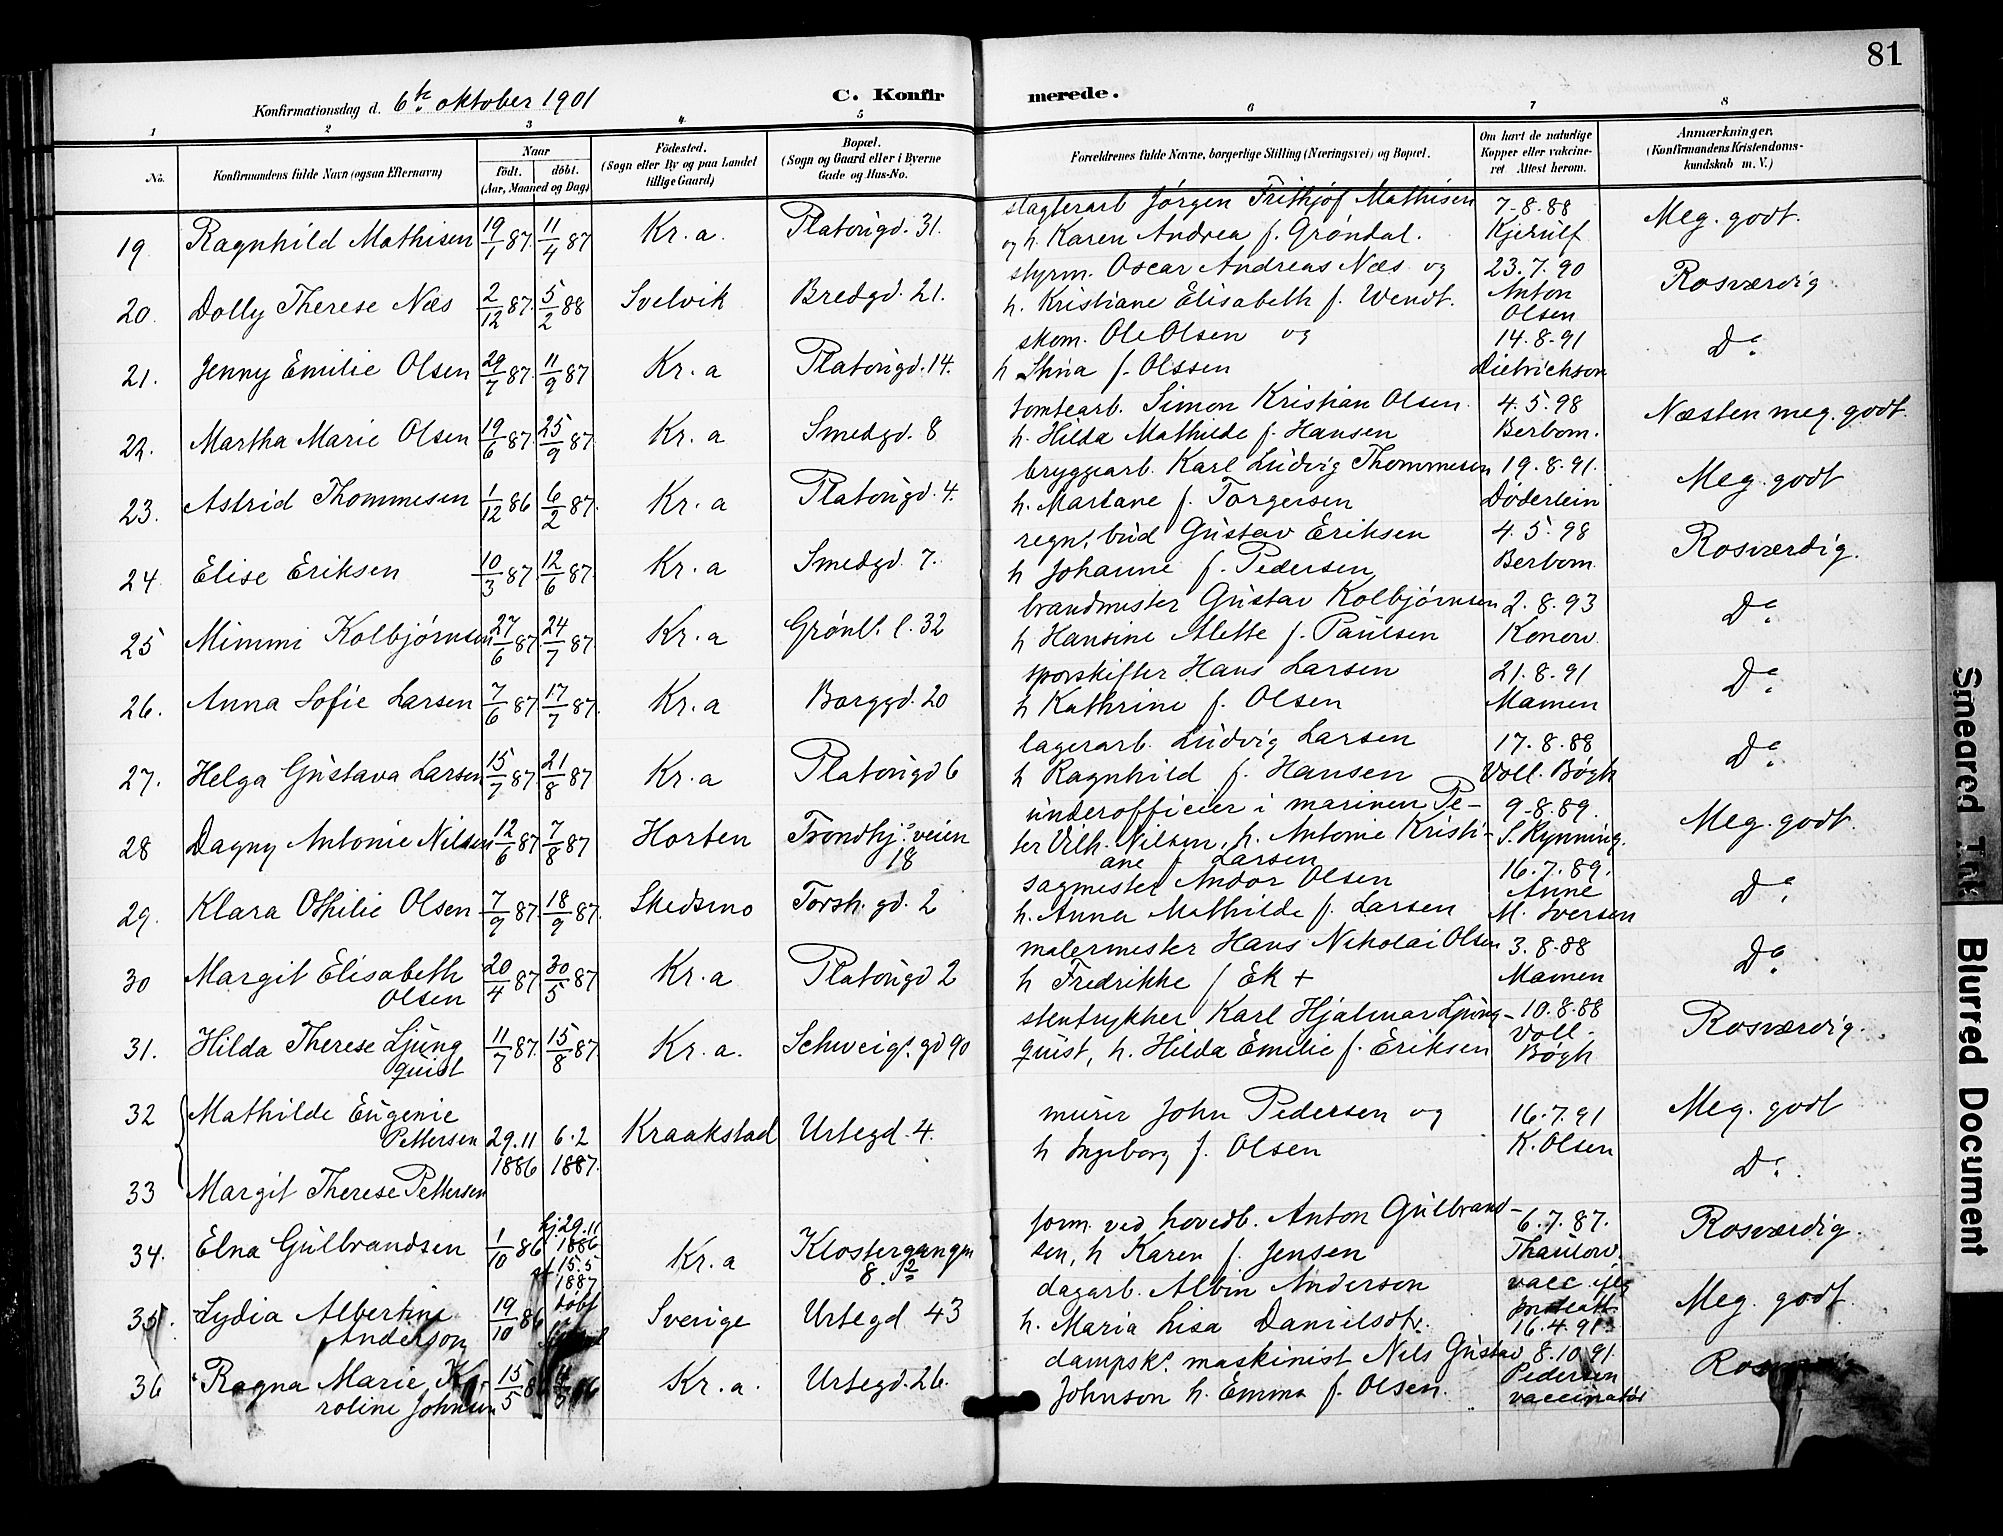 81
Konfirmationsdag d. 6te oktober 1901
C. Konfir merede.
1 2 3 4 5 6 7 8
No.
Konfirmandens fulde Navn (ogsaa Efternavn)
Naar
født. døbt.
(Aar, Maaned og Dag)
Fødested.
(Sogn eller By og paa Landet
tillige Gaard)
Bopæl.
(Sogn og Gaard eller i Byerne
Gade og Hus-No.
Forældrenes fulde Navne, borgerlige Stilling (Næringsvei) og Bopæl.
Om havt de naturlige
Kopper eller vakcine-
ret Attest herom.
Anmærkninger,
(Konfirmandens Kristendoms-
kundskab m. V.)
19 Ragnhild Mathisen 19/1 87. 11/4 87 Kr.a. Platousgd. 31. slagterarb Jørgen Frithjof Mathisen 7-8-88 Meg. godt.
og h. Karen Andrea f. Grøndal. Kjerulf
20. Dolly Therese Næs 2/12 87. 5/2 88 Svelvik Bredgd. 21. styrm. Oscar Andreas Næs og 23.7.90 Rosværdig
h. Kristiane Elisabeth f. Wendt. Anton
Olsen
21. Jenny Emilie Olsen 29/7 87. 11/9 87 Kr.a Platousgd. 14. skom. Ole Olsen og 14.8.91 Do.
h Stina f. Olssen Dietrichson
22. Martha Marie Olsen 19/6 87. 25/9 87. Kr.a Smedgd. 8 tomtearb. Simon Kristian Olsen. 4.5.98 Næsten meg. godt.
h. Hilda Mathilde f. Hansen Berbom.
23. Astrid Thommesen 1/12 86 6/2 87. Kr.a Platousgd. 4. bryggearb. Karl Ludvig Thommesen 19.8.91. Meg. godt
h. Martane f. Torgersen Døderlein
24 Elise Eriksen 10/3 87. 12/6 87. Kr.a Smedgd. 7. regn. bud Gustav Eriksen 4.5.98 Rosværdig.
h Johanne f. Pedersen Berbom
25 Mimmi Kolbjørnsen 27/6 87. 24/7 87. Kr.a Grønl. l. 32 brandmester Gustav Kolbjørnsen 2.8.93 Do.
h Hansine Alette f. Paulsen Konow.
26. Anna Sofie Larsen 7/6 87 17/7 87. Kr.a Borggd. 20 sporskifter Hans Larsen 21.8.91 Do.
h Kathrine f. Olsen Mamen
27. Helga Gustava Larsen 15/7 87. 21/8 87 Kr.a Platousgd 6 lagerarb. Ludvig Larsen 17.8.88 Do.
h Ragnhild f. Hansen Voll. Bøgh
28 Dagny Antonie Nilsen 12/6 87 7/8 87 Horten Trondhj.sveien underofficier i marinen Pe- 9-8.89. Meg. godt.
18 ter Vilh. Nilsen, h. Antonie Kristi- S. Rynning.
ane f Larsen
29. Klara Othilie Olsen 7/9 87. 18/9 87. Skedsmo Torsh. gd. 2 sagmester Andor Olsen 16.7.89. Do.
h. Anna Mathilde f. Larsen Anne
M. Iversen
30 Margit Elisabeth 20/4 87 30/5 87 Kr.a Platousgd 2 malermester Hans Nikolai Olsen 3.8.88 Do.
Olsen h Fredrikke f Ek + Mamen
31. Hilda Therese Ljung 11/7 87. 15/8 87 Kr.a. Schweigs. gd 90 stentrykker Karl Hjalmar Ljung- 10.8.88 Rosværdig.
quist quist, h. Hilda Emilie f. Eriksen Voll-
Bøgh
32 Mathilde Eugenie murer John Pedersen og 16.7.91 Meg. godt
Pettersen 29.11 6.2 Kraakstad Urtegd. 4. h Ingeborg f. Olsen K. Olsen
1886 1887.
33 Margit Therese Pettersen Do.
34. Elna Gulbrandsen 1/10 86 hj. 29.11 1886 15.5 1887 Kr.a Klostergangen form. ved hovedb. Anton Gulbrand- 6.7.87. Rosværdig.
8. sen, h Karen f. Jensen Thaulow.
35. Lydia Albertine 19/10 86 døbt Sverige Urtegd 43 dagarb. Albin Anderson vacc. Meg. godt.
Anderson h. Maria Lisa Danielsdtr. 16.4.91
36 Ragna Marie Ka- 15/5 Kr.a. Urtegd. 26. dampsk. maskinist Nils Gustav 8.10.91.
roline Johnsen Johnson h. Emma f. Olsen. Pedersen
vaccinatør
Smeared Ink
Blurred Document